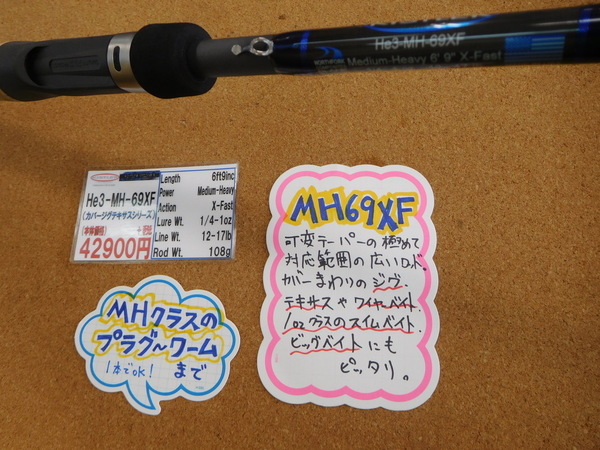 He3-MH-69XF
Medium-Heavy 6' 9" X-Fast
He3-MH-69XF
(カバージグテキサスシリーズ)
(本体価格) +税
42900円
Length 6ft9inc
Power Medium-Heavy
Action X-Fast
Lure Wt. 1/4-1oz
Line Wt. 12-17lb
Rod Wt. 108g
MH69XF
可変テーパーの極めて
対応範囲の広いロッド。
カバーまわりのジグ、
テキサスやワイヤーベイト、
1ozクラスのスイムベイト、
ビッグベイトにも
ピッタリ。
MHクラスの
プラグ〜ワーム
まで
1本でOK!